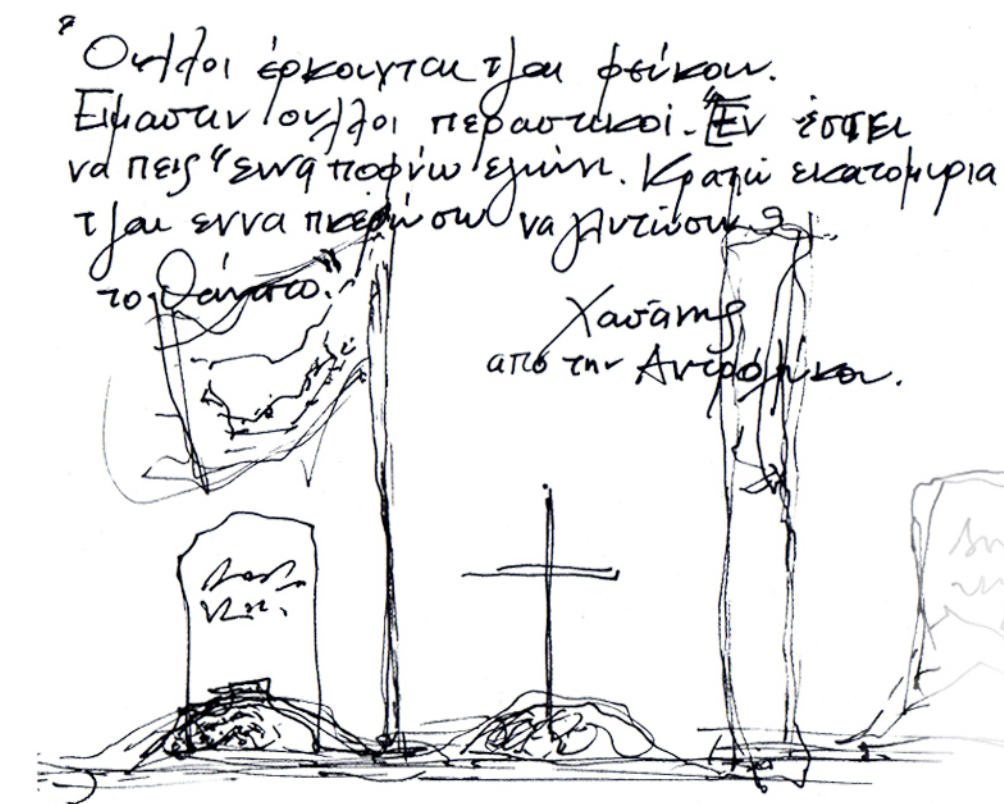 Ούλλοι έρκουνται τζαι φεύκουν.
Είμαστιν ούλλοι περαστικοί. Έν έσιει
να πεις "εννά ποφύω εγιώνι. Κρατώ εκατομύρια
τζαι εννα πκερώσω να γλυτώσω
το θάνατο.
Χασάνης
από την Αντρολίκου.